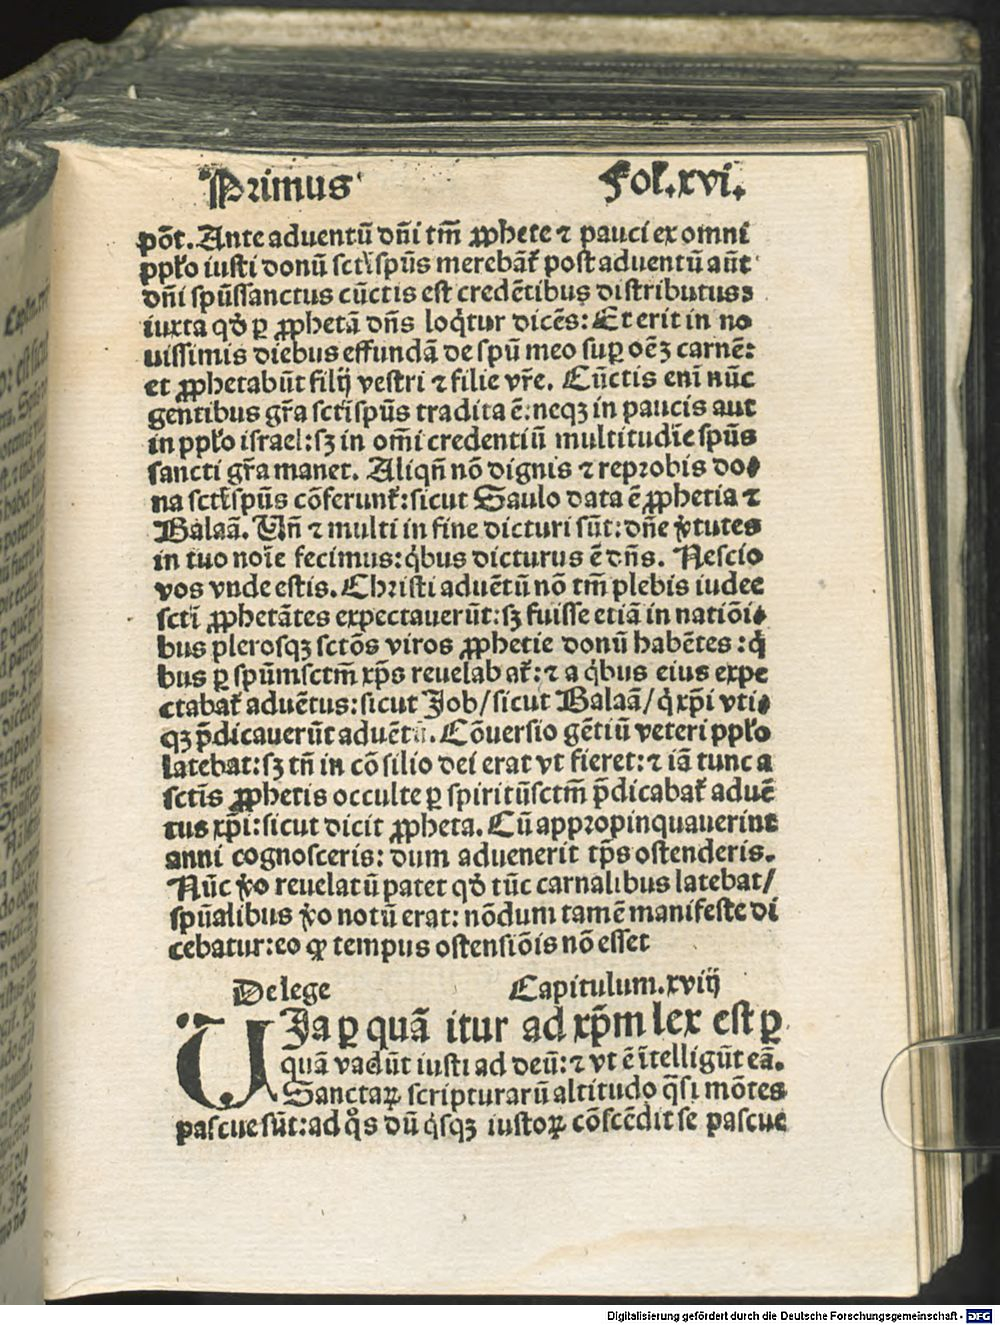 Primus Fol.xvi.
põt. Ante aduentũ dñi tm̃ ꝓphete ⁊ pauci ex omni
ppl̃o iusti donũ sctĩspũs merebãt̃ post aduentũ aũt
dñi spũssanctus cũctis est credẽtibus distributus:
iuxta qđ ꝑ ꝓphetã dñs loq̃tur dicẽs: Et erit in no
uissimis diebus effundã de spũ meo suꝑ oẽꝫ carnẽ:
et ꝓphetabũt filij vestri ⁊ filie vr̃e. Cũctis enĩ nũc
gentibus gr̃a sctĩspũs tradita ẽ: neqꝫ in paucis aut
in ppl̃o israel: sꝫ in om̃i credentiũ multitudĩe spũs
sancti gr̃a manet. Aliqñ nõ dignis ⁊ reprobis do⸗
na sctĩspũs cõferunt̃: sicut Saulo data ẽ ꝓphetia ⁊
Balaã. Vñ ⁊ multi in fine dicturi sũt: dñe v̓tutes
in tuo noĩe fecimus: q̓bus dicturus ẽ dñs. Nescio
vos vnde estis. Christi aduẽtũ nõ tm̃ plebis iudee
sctĩ ꝓphetãtes expectauerũt: sꝫ fuisse etiã in natiõi⸗
bus plerosqꝫ sctõs viros ꝓphetie donũ habẽtes: q̓
bus ꝑ spũmsctm̃ xp̃s reuelabat̃: ⁊ a q̓bus eius expe
ctabat̃ aduẽtus: sicut Job/ sicut Balaã/ q̓ xp̃i vti⸗
qꝫ p̃dicauerũt aduẽtũ. Cõuersio gẽtiũ veteri ppl̃o
latebat: sꝫ tñ in cõsilio dei erat vt fieret: ⁊ iã tunc a
sctĩs ꝓphetis occulte ꝑ spiritũsctm̃ p̃dicabat̃ aduẽ
tus xp̃i: sicut dicit ꝓpheta. Cũ appropinquauerint
anni cognosceris: dum aduenerit tp̃s ostenderis.
Nũc v̓o reuelatũ patet qđ tũc carnalibus latebat/
spũalibus v̓o notũ erat: nõdum tamẽ manifeste di
cebatur: eo ꝙ tempus ostensiõis nõ esset
De lege Capitulum.xviij
VIa ꝑ quã itur ad xp̃m lex est ꝑ
quã vadũt iusti ad deũ: ⁊ vt ẽ ĩtelligũt eã.
Sanctaꝝ scripturarũ altitudo q̃si mõtes
pascue sũt: ad q̊s dũ q̓sqꝫ iustoꝝ cõscẽdit se pascue
Digitalisierung gefördert durch die Deutsche Forschungsgemeinschaft - DFG